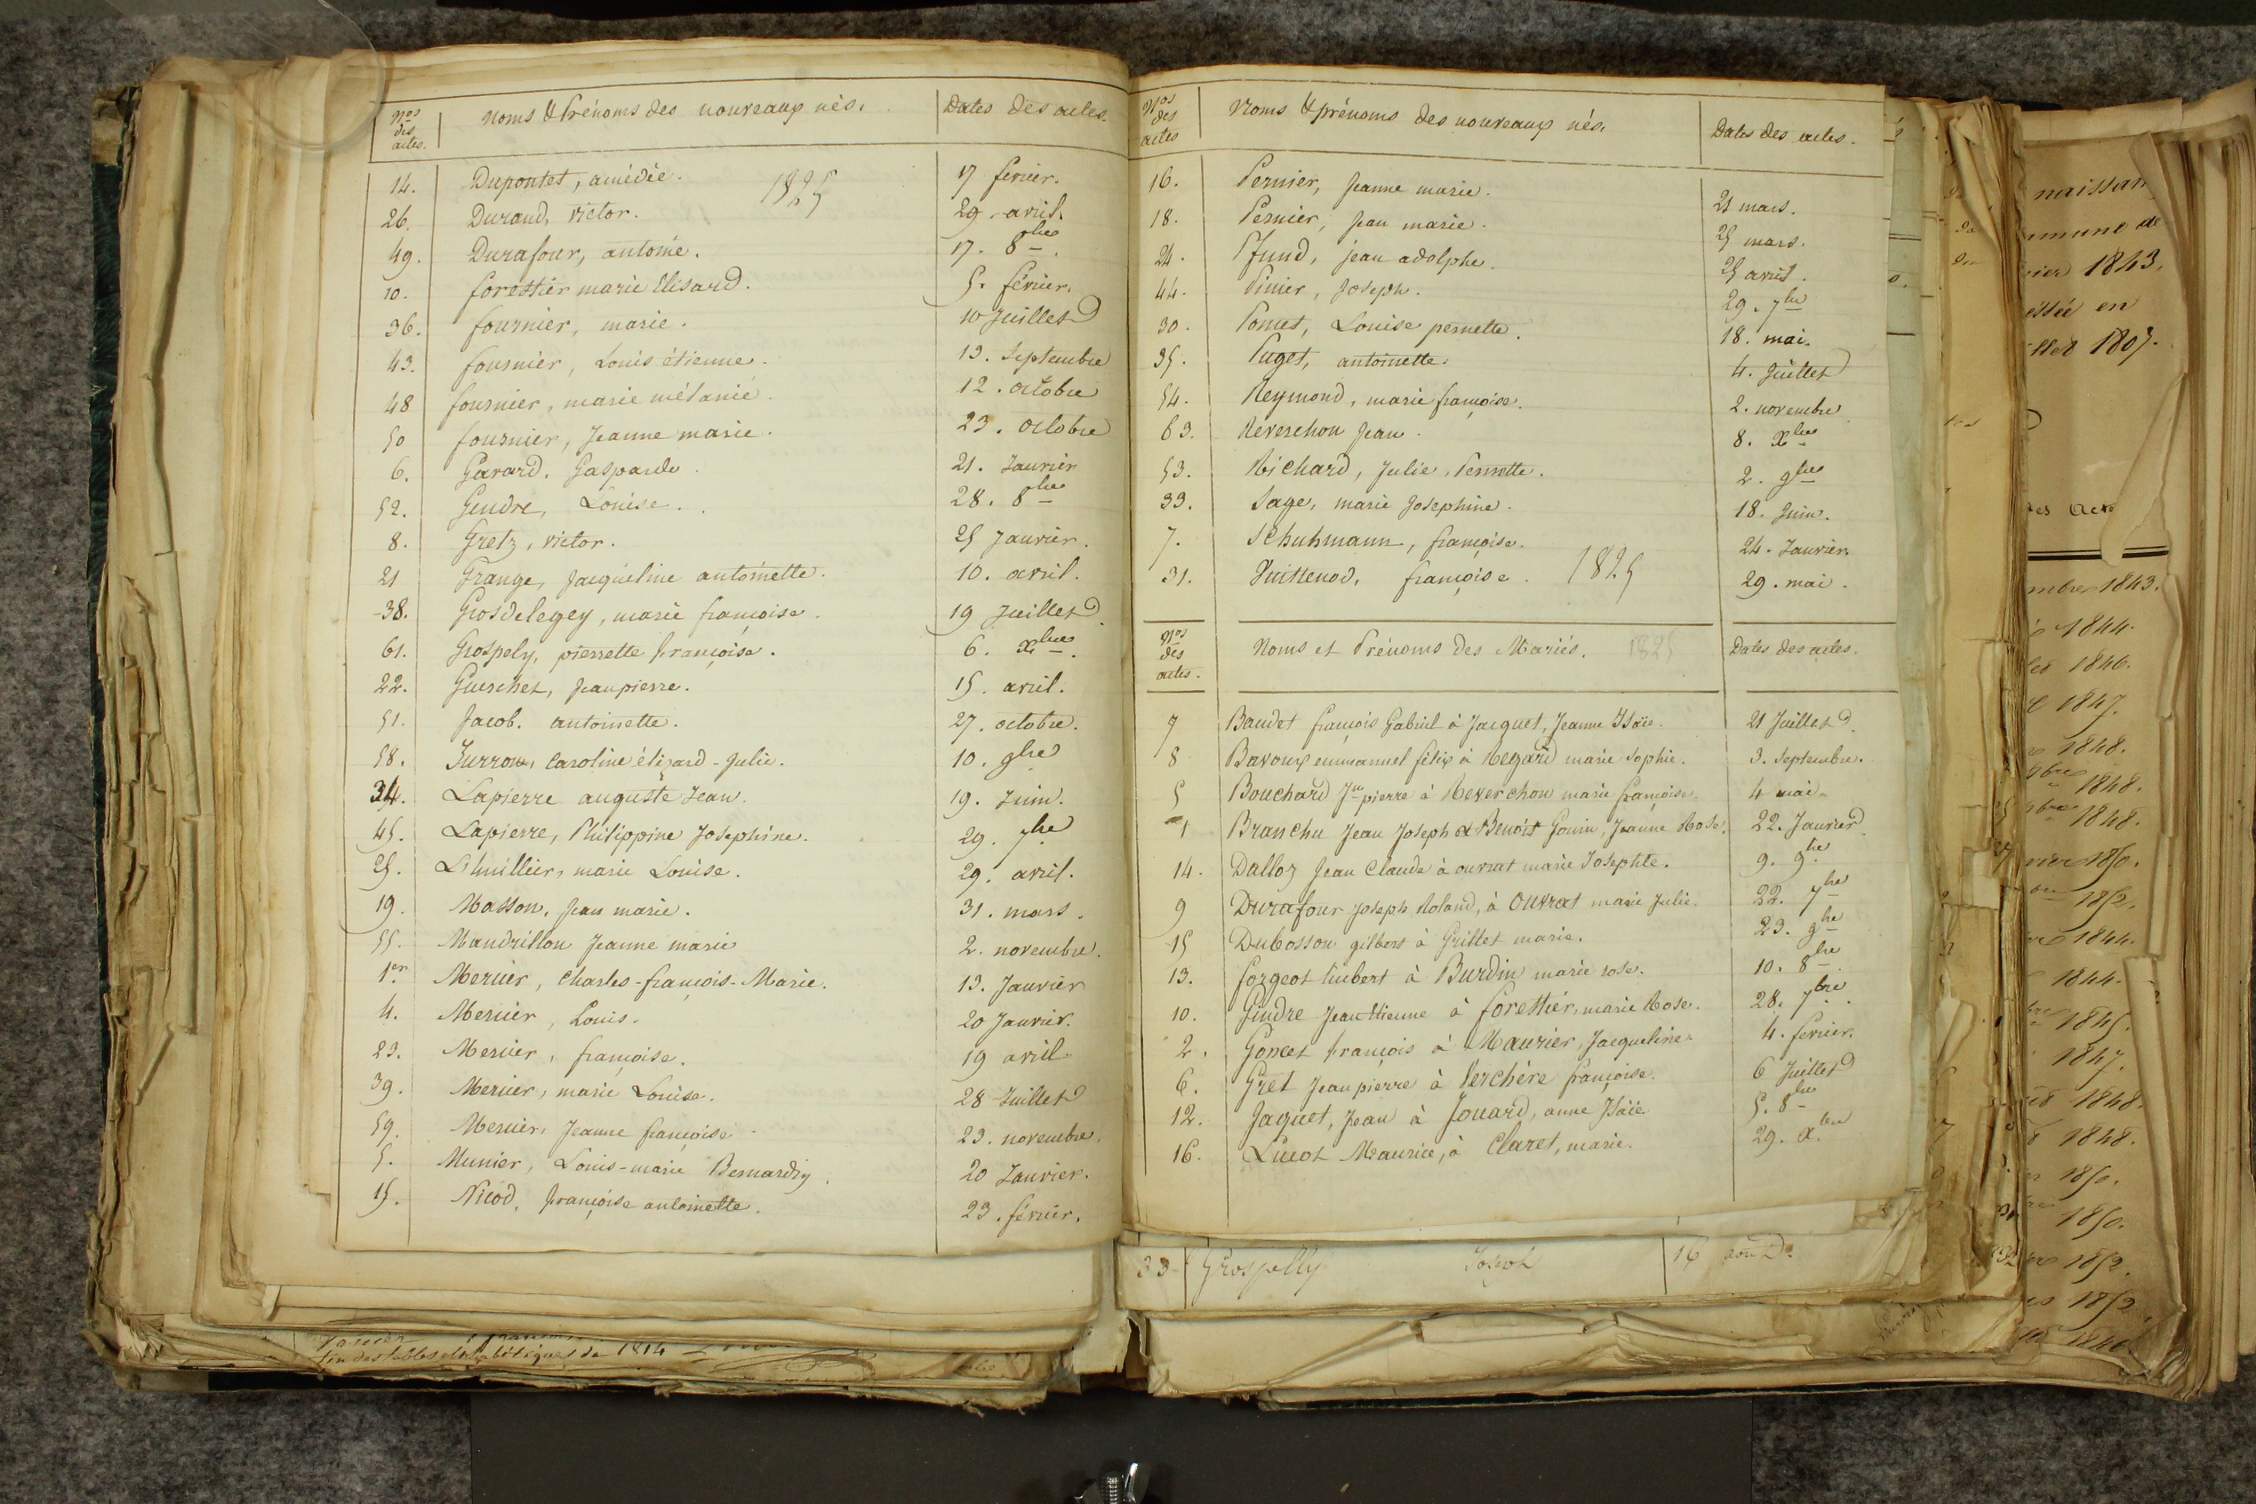 Nos des actes. Noms & Prénoms des nouveaux nés. Dates des actes.
14. Dupontet, amédée. 1825 17 février.
26. Durand, victor. 29 avril.
49. Durafour, antoine. 17. 8bre.
10. forestier marie Elisard. 5. février.
36. fournier, marie. 10 Juillet
43. fournier, Louis étienne. 13. Septembre
48 fournier, marie mélanie. 12. octobre
50 fournier, Jeanne marie. 23. octobre
6. Gavard, Gasparde. 21. Janvier
52. Gendre, Louise. 28. 8bre
8. Gretz, victor. 25 Janvier.
21 Grange, Jacqueline antoinette. 10. avril.
38. Grosdelegey, marie françoise. 19 Juillet.
61. Grospely, pierrette françoise. 6. Xbre.
22. Guerchet, Jean pierre. 15. avril.
51. Jacob. antoinette. 27. octobre.
58. Jurron, Caroline élizard-Julie. 10. 9bre
34. Lapierre auguste Jean. 19. Juin.
45. Lapierre, Philippine Josephine. 29. 7bre
25. Lhuillier, marie Louise. 29. avril.
19. Masson, Jean marie. 31. mars.
55. Mandrillon Jeanne marie 2. novembre.
1er. Mercier, Charles-françois-Marie. 13. Janvier
4. Mercier, Louis. 20 Janvier.
23. Mercier, françoise. 19 avril
39. Mercier, marie Louise. 28 Juillet
59. Mercier, Jeanne françoise 23. novembre.
5. Munier, Louis-marie Bernardin. 20 Janvier.
15. Nicod, françoise antoinette. 23. février.
Nos des actes Noms & prénoms des nouveaux nés. Dates des actes.
16. Pernier, Jeanne marie. 21 mars.
18. Pernier, Jean marie. 25 mars.
24. Pfund, jean adolphe. 25 avril.
44. Pinier, Joseph. 29. 7bre
30. Pomet, Louise pernette. 18. mai.
35. Puget, antoinette. 4. Juillet
54. Reymond, marie françoise. 2. novembre
63. Reverchon Jean. 8. Xbre
53. Richard, Julie, Pernette. 2. 9bre
33. Sage, marie Josephine. 18. Juin.
7. Schuhmann, françoise. 24. Janvier.
31. Vuittenod, françoise. 1825 29. mai.
Nos des actes. Noms et Prénoms des Mariés. 1825 Dates des actes.
7 Baudet françois Gabriel à Jacquet, Jeanne Isaïe. 21 Juillet.
8 Bavoux emmanuel félix à Regard marie Sophie. 3. Septembre.
5 Bouchard Jn pierre à Reverchon marie françoise. 4 mai
1 Branchu Jean Joseph & Benoist Gouin, Jeanne Rose. 22. Janvier.
14. Dalloz Jean Claude à ouvrat marie Josephte. 9. 9bre.
9 Durafour Joseph Roland, à Ouvrat marie Julie. 22. 7bre
15 Dubosson gilbert à Grillet marie. 23. 9bre
13. forgeot himbert à Burdin marie rose. 10. 8bre.
10. Gindre Jean Etienne à forestier, marie Rose. 28. 7bre.
2. Goncet françois à Maurier, Jacqueline 4. février.
6. Gret Jean pierre à Verchère françoise. 6 Juillet
12. Jaquet, Jean à Jouard, anne Isaïe 5. 8bre
16. Lucot Maurice, à Claret, marie. 29. Xbre.
33 Grospelly Joseph 16 aout Do
fin des tables alphabétiques de 1814
naissan
mmune de
1843.
1807.
1843.
1844.
1846.
1847.
1848.
9bre 1848.
1848.
1850.
1852.
1844.
1844.
1845.
1847.
1848.
1848.
1850.
1850.
1852.
1852